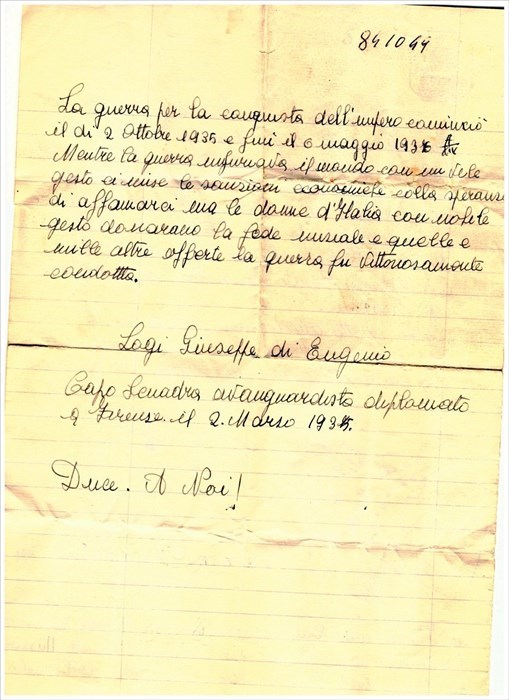 841044
La guerra per la conquista dell'impero cominciò
il dì 2 Ottobre 1935 e finì il 6 maggio 1936
Mentre la guerra infuriava il mondo con un vile
gesto ci mise le sanzioni economiche colla speranza
di affamarci ma le donne d'Italia con nobile
gesto donarano la fede nuziale e quelle e
mille altre offerte la guerra fu vittoriosamente
condotta.
Lagi Giuseppe di Eugenio
Capo Squadra avanguardista diplomato
a Firenze il 2. Marzo 1935.
Duce. A Noi!